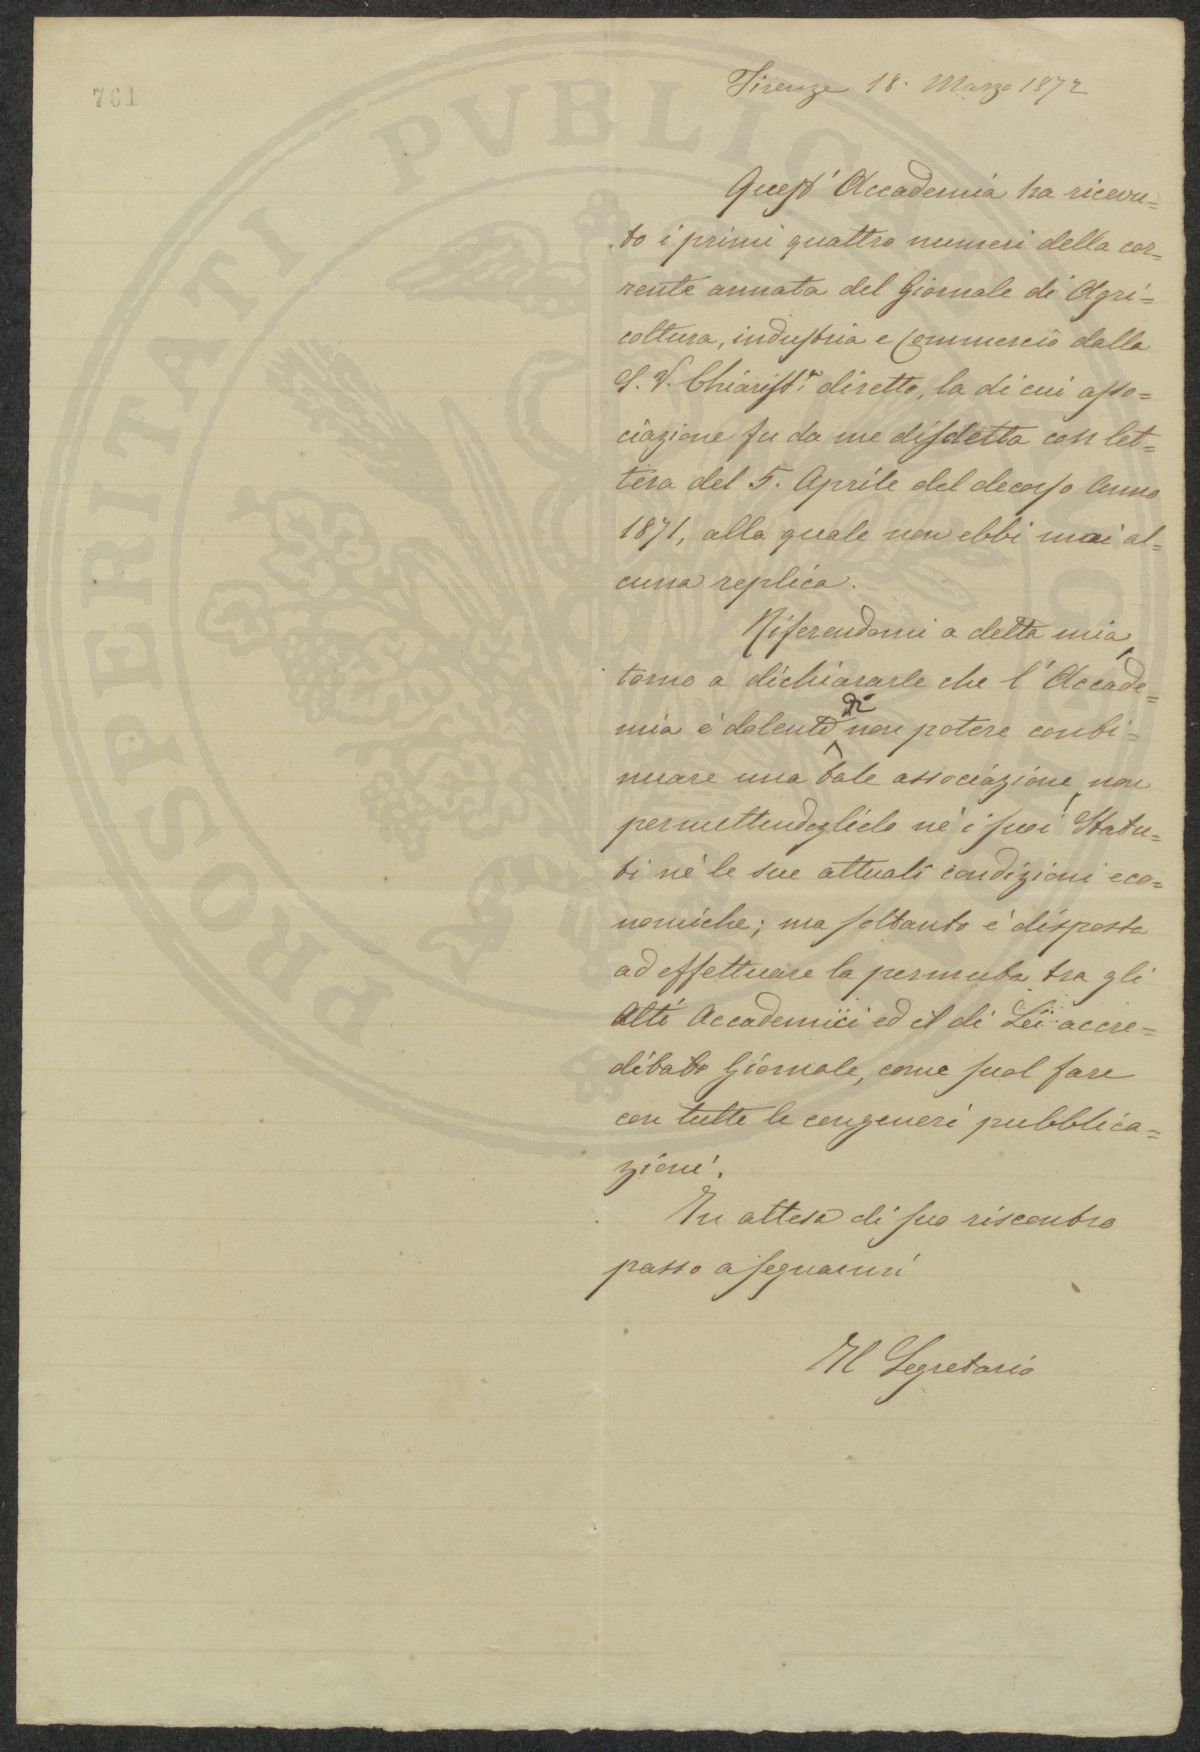 761
Firenze 18. Marzo 1872
Quest' Accademia ha ricevu=
to i primi quattro numeri della cor=
rente annata del Giornale di Agri=
coltura, industria e Commercio dalla
S. V. Chiariss.ª diretto, la di cui asso=
ciazione fu da me disdetta con let=
tera del 5. Aprile del decorso Anno
1871, alla quale non ebbi mai al=
cuna replica.
Riferendomi a detta mia,
torno a dichiararle che l' Accade=
mia è dolente di non potere conti=
nuare una tale associazione, non
permettendoglielo nè i suoi Statu=
ti nè le sue attuali condizioni eco=
nomiche; ma soltanto è disposta
ad effettuare la permuta tra gli
Atti Accademici ed il di Lei accre=
ditato Giornale, come suol fare
con tutte le congeneri pubblica=
zioni.
In attesa di suo riscontro
passo a segnarmi
Il Segretario
PROSPERITATI PVBLICAE